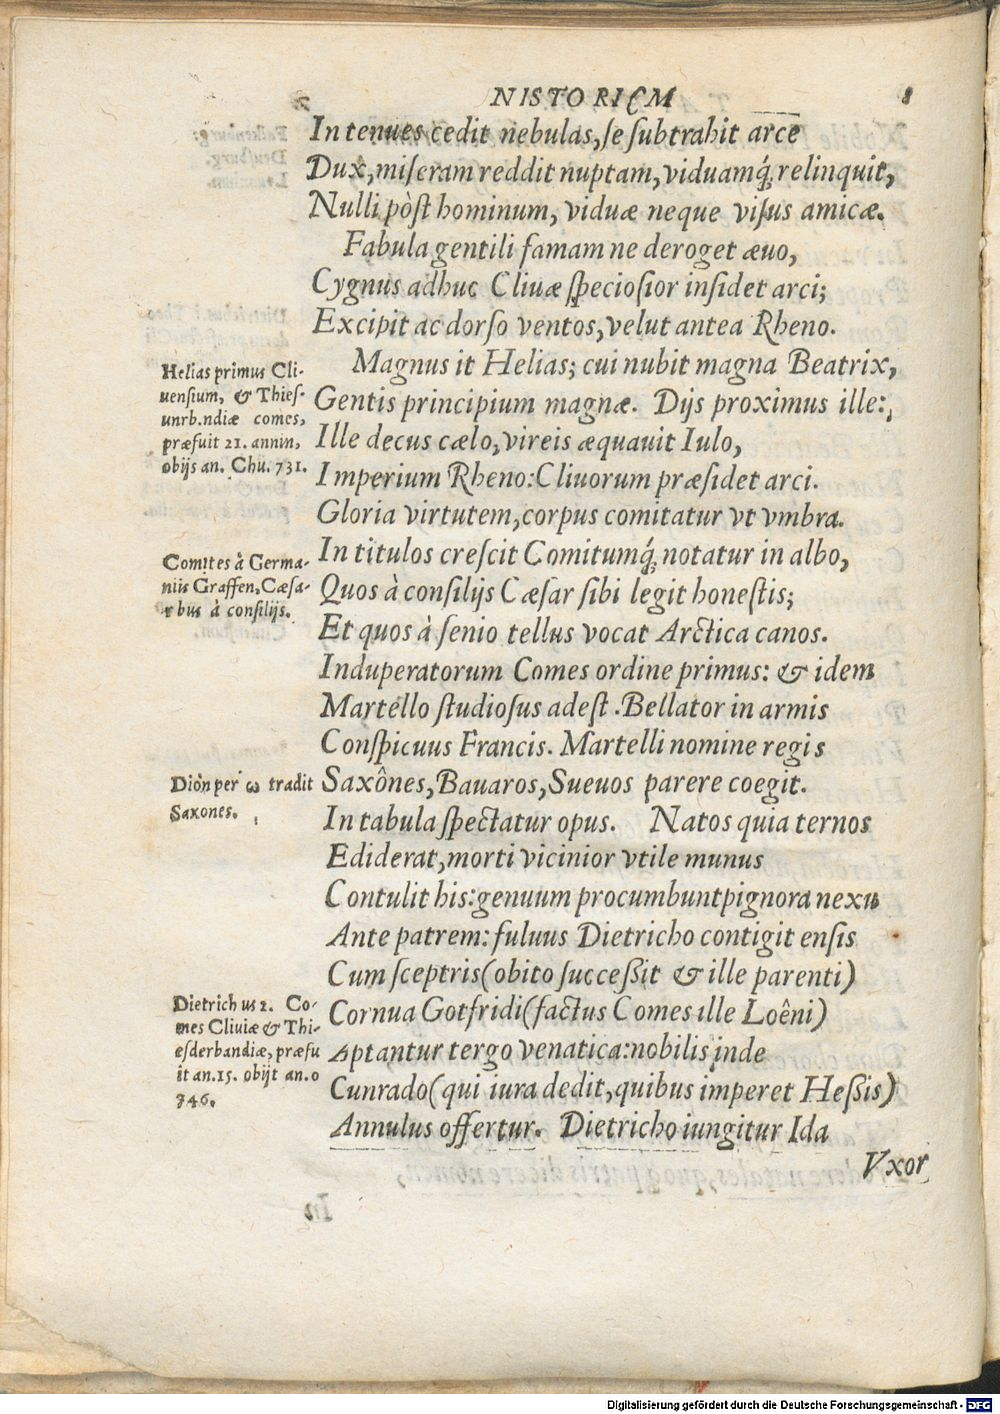 NISTORICM 8
In tenues cedit nebulas, se subtrahit arce
Dux, miseram reddit nuptam, viduamq́; relinquit,
Nulli pòst hominum, viduæ neque visus amicæ.
Fabula gentili famam ne deroget ævo,
Cygnus adhuc Clivæ speciosior insidet arci;
Excipit ac dorso ventos, velut antea Rheno.
Magnus it Helias; cui nubit magna Beatrix,
Helias primus Cli-
uensium, & Thies-
unrb.ndiæ comes,
præfuit 21. annin,
obijs an. Chu. 731.
Gentis principium magnæ. Dijs proximus ille:,
Ille decus cælo, vireis æquauit Iulo,
Imperium Rheno: Cliuorum præsidet arci.
Gloria virtutem, corpus comitatur vt vmbra.
In titulos crescit Comitumq́; notatur in albo,
Comites à Germa-
niis Graffen, Cæsa-
rbus à consilijs.
Quos à consilijs Cæsar sibi legit honestis;
Et quos à senio tellus vocat Arctica canos.
Induperatorum Comes ordine primus: & idem
Martello studiosus adest. Bellator in armis
Conspicuus Francis. Martelli nomine regis
Diòn per ω tradit
Saxones.
Saxônes, Bauaros, Sueuos parere coegit.
In tabula spectatur opus. Natos quia ternos
Ediderat, morti vicinior vtile munus
Contulit his: genuum procumbunt pignora nexu
Ante patrem: fuluus Dietricho contigit ensis
Cum sceptris (obito successit & ille parenti)
Dietrichus 2. Co-
mes Cliuiæ & Thi-
esderbandiæ, præfu
it an. 15. obijt an. o
746.
Cornua Gotfridi (factus Comes ille Loêni)
Aptantur tergo venatica: nobilis inde
Cunrado (qui iura dedit, quibus imperet Hessis)
Annulus offertur. Dietricho iungitur Ida
Vxor
Digitalisierung gefördert durch die Deutsche Forschungsgemeinschaft - DFG